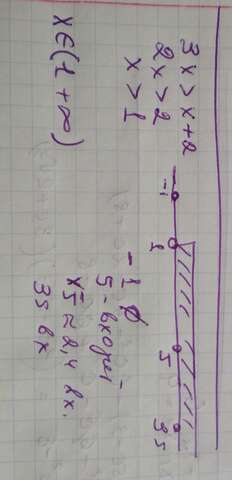 3x > x+2
2x > 2
x > 1
-1 1 5 35
x∈(1 +∞)
-1 ∅
5 - входит
√5 ≈ 2,4 вх.
35 вх